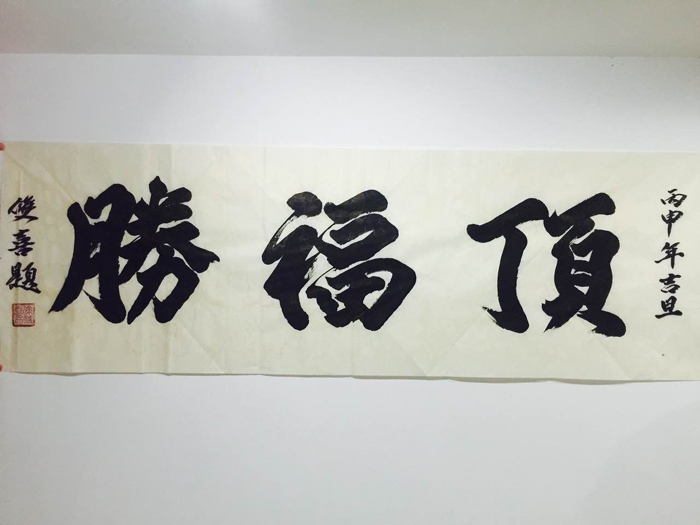 丙申年吉旦
頂福勝
雙喜題